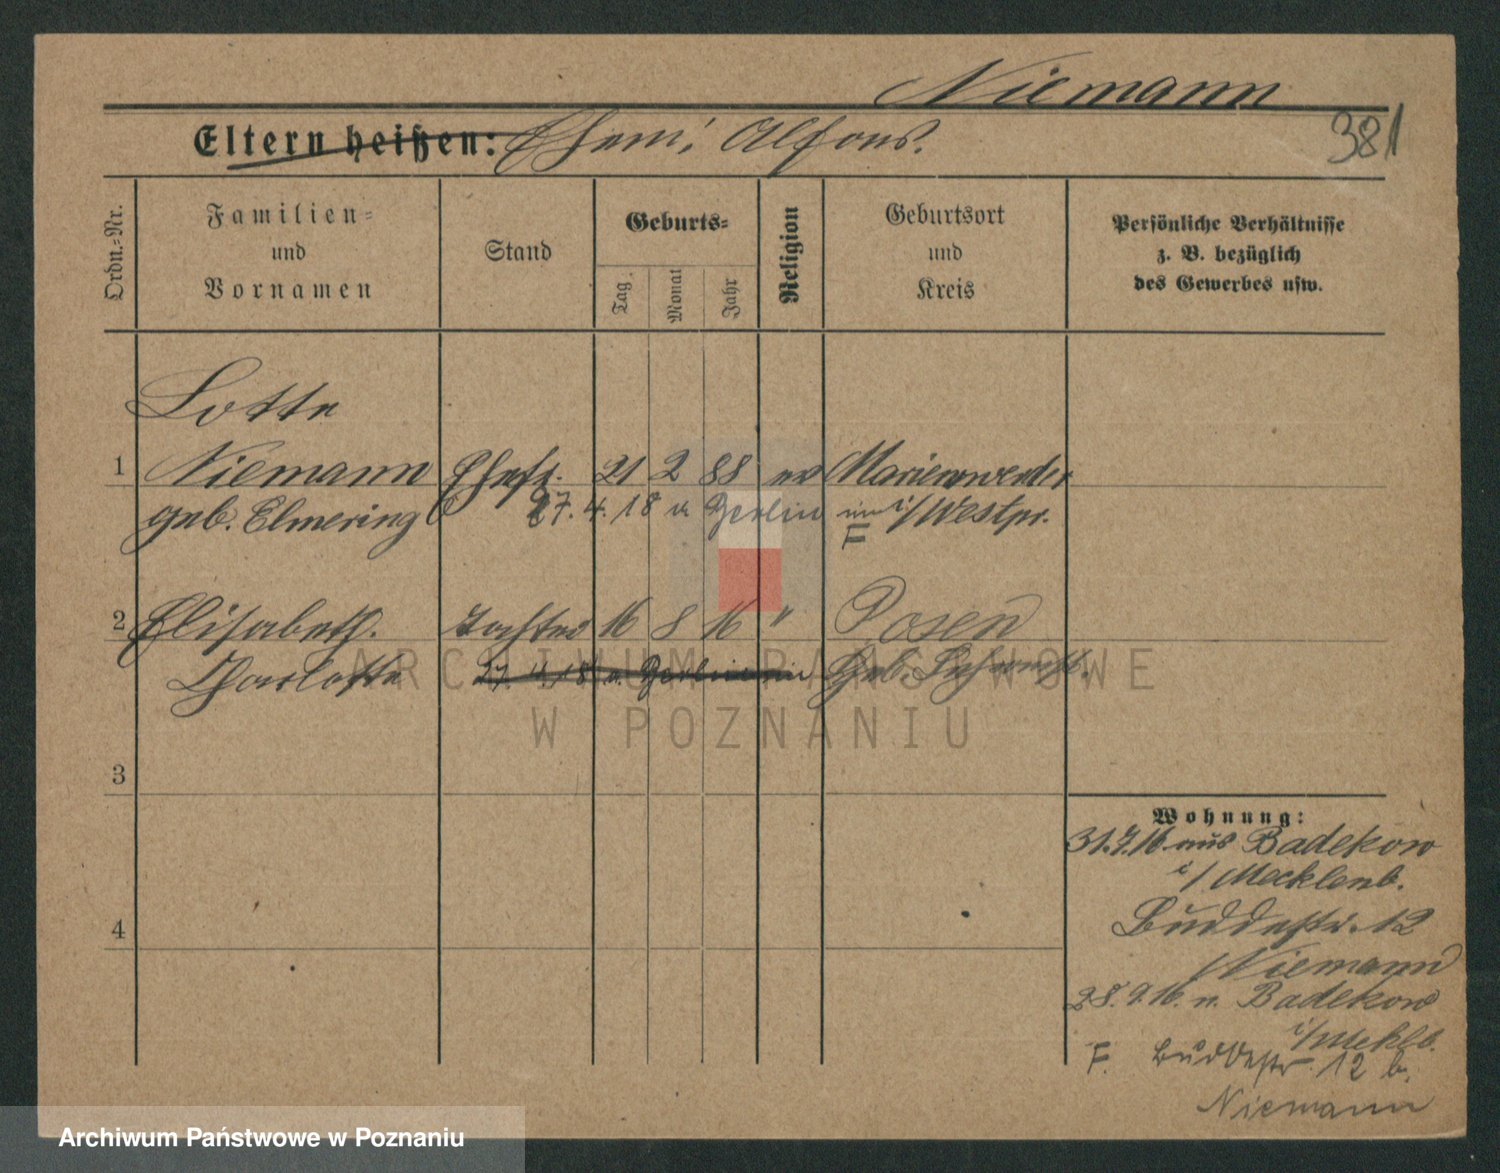 Niemann
Eltern heißen: Ehem. Alfons.
381
Ordn.=Nr.
Familien=
und
Vornamen
Stand
Geburts=
Tag.
Monat
Jahr
Religion
Geburtsort
und
Kreis
Persönliche Verhältnisse
z. B. bezüglich
des Gewerbes usw.
Lotte
1 Niemann Ehefr. 21 2 88 ev Marienwerder
geb. Elmering 27.4.18 n Berlin i/Westpr.
F
2 Elisabeth. Tochter 16 8 16 " Posen
Charlotte 27 4 18 n. Berlin Geb.
ARCHIWUM PAŃSTWOWE
W POZNANIU
3
4
Wohnung:
31.7.16. aus Badekow
i/Mecklenb.
Buddestr. 12
Niemann
28.9.16. n. Badekow
i/Meklb.
F. Buddestr. 12 b.
Niemann
Archiwum Państwowe w Poznaniu